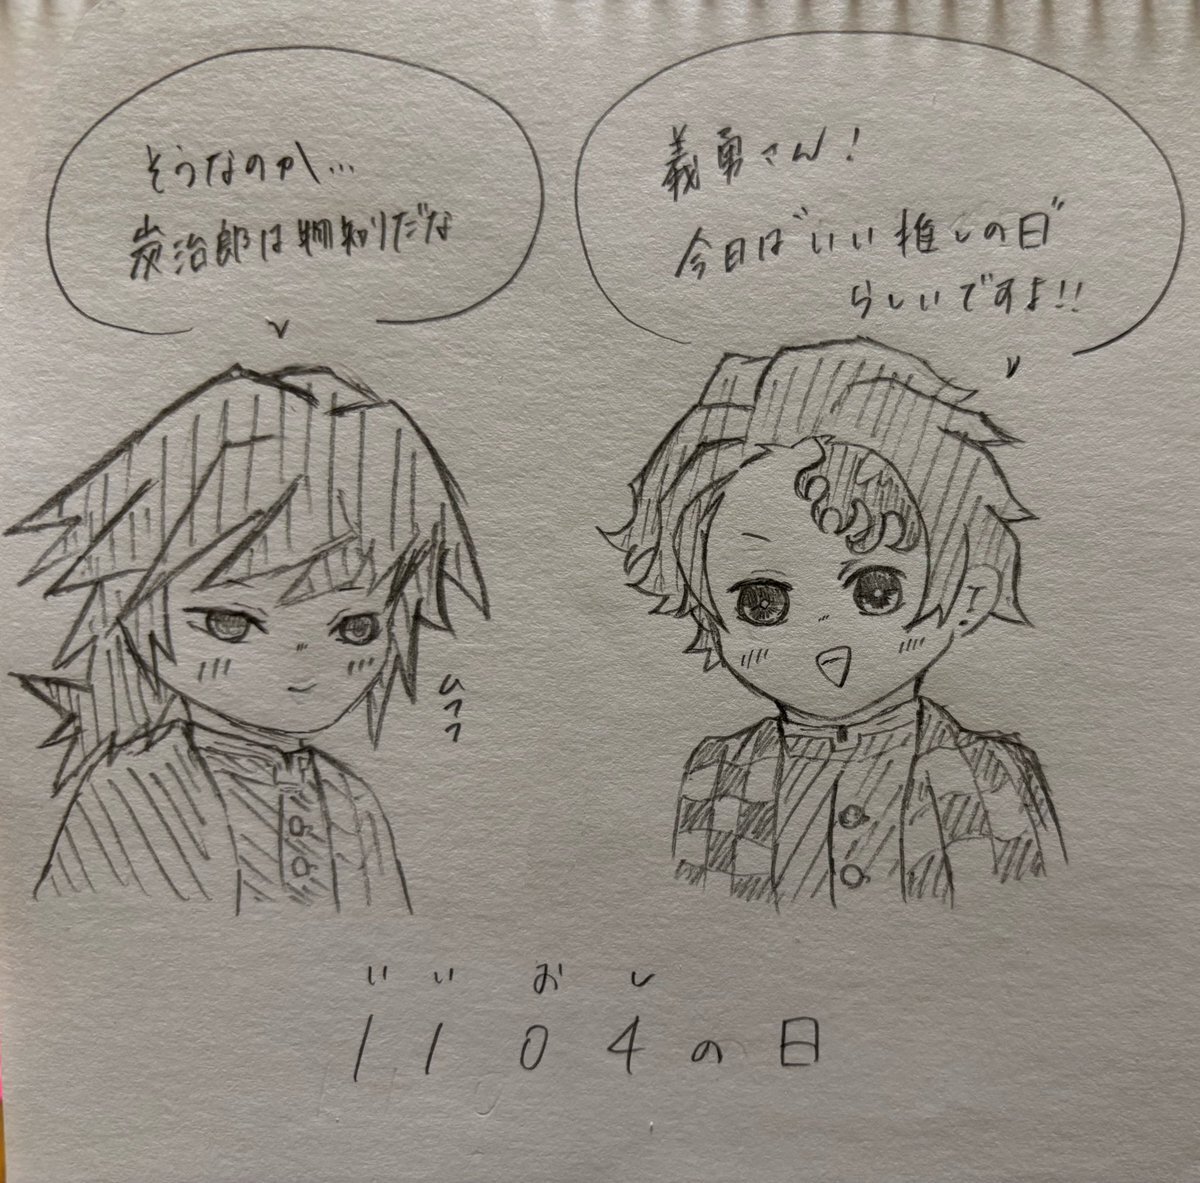 義勇さん!
今日は"いい推しの日"
らしいですよ!!
そうなのか…
炭治郎は物知りだな
ムフフ
いいおし
1104の日